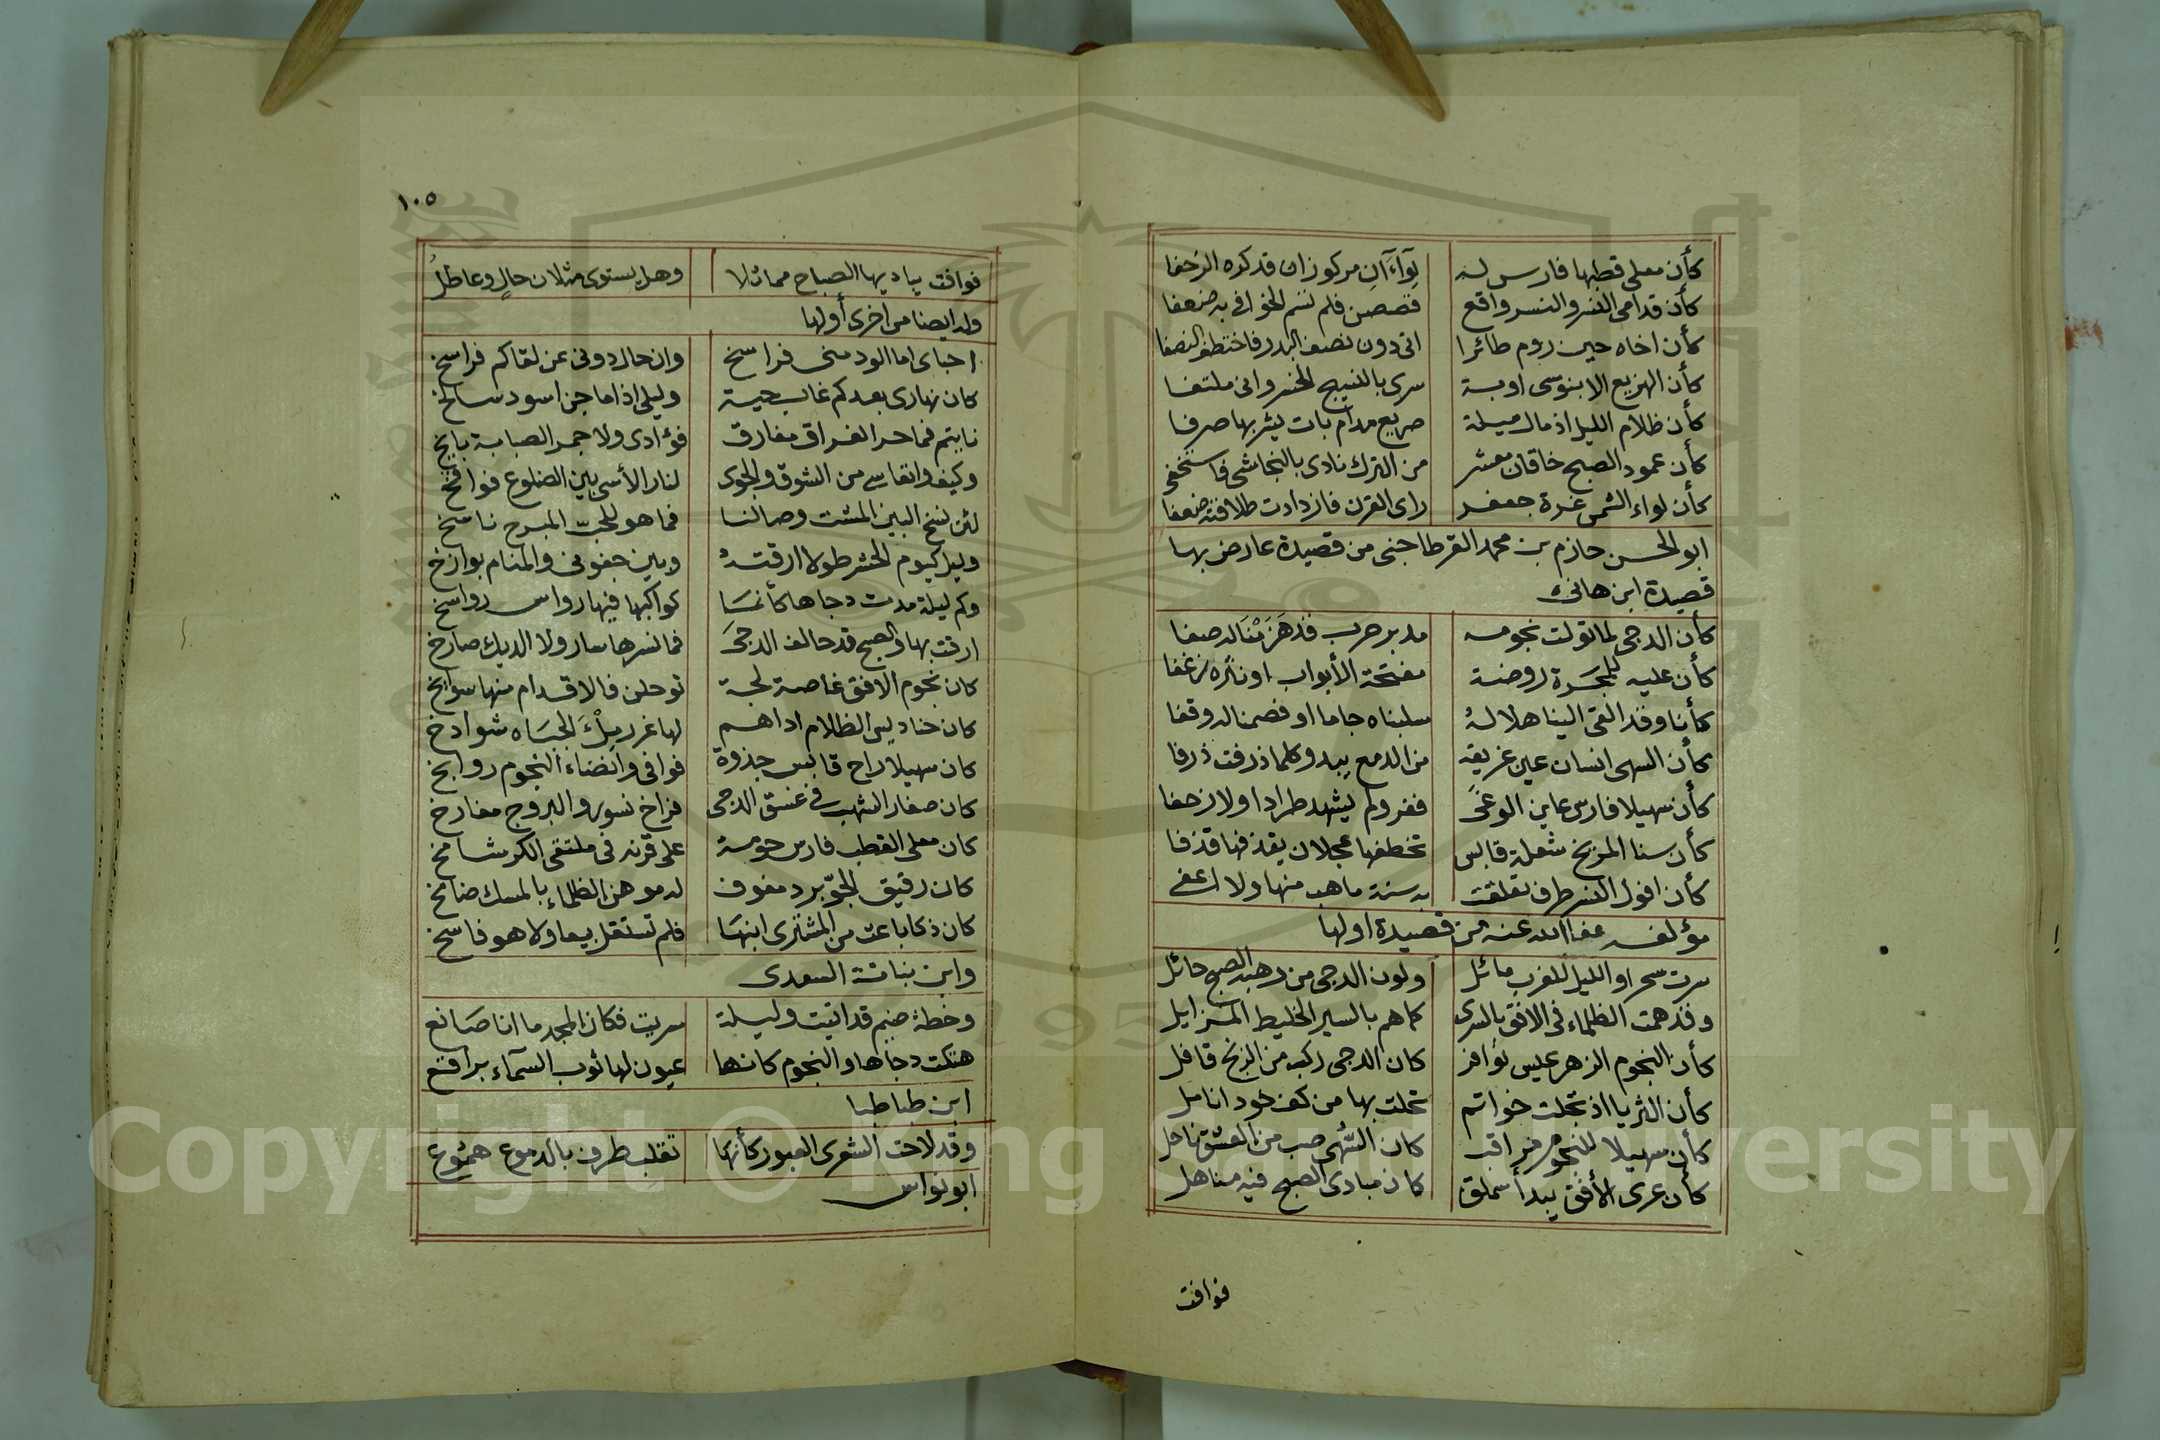 كأن معلى قطبها فارس له لوآءآن مركوزان قد كره الزحفا
كأن قدامى النسر والنسر واقع قصصن فلم تسم الخوافي به ضعفا
كأن اخاه حين روم طائرا اتى دون نصف البدر فاختطف النصفا
كأن الهزيع الابنوسى اوبة سرى بالنسيج الخسروانى ملتفا
كأن ظلام الليل اذ مال ميلة صريع مدام بات يشربها صرفا
كأن عمود الصبح خاقان معشر من الترك نادى بالنجاشى فاستخفى
كأن لواء الشمس غرة جعفر راى القرن فازدادت طلاقته ضعفا
ابو الحسن حازم بن محمد القرطاجنى من قصيدة عارض بها
قصيدة ابن هانىء
كأن الدجى لما تولت نجومه مدبر حرب قد هزمنا له صفا
كأن عليه للمجرة روضة مفتحة الأبواب او نثره زغفا
كأنا وقد القى الينا هلاله سلبناه جاما او فصمنا له وقفا
كأن السهى انسان عين غريقه من الدمع يبدو كلما ذرفت ذرفا
كأن سهيلا فارس عاين الوغى ففر ولم يشهد طرادا ولا زحفا
كأن سنا المريخ شعلة قابس تخطفها عجلان يقذفها قذفا
كأن افول النسر طرف تعلقت به سنة ماهب منها ولا اغفى
مؤلفه عفا الله عنه من قصيدة اولها
سرت سحرا والليل للغرب مائل ولون الدجى من رهبة الصبح حائل
وقد همت الظلماء فى الافق بالسرى كما هم بالسير الخليط المزايل
كأن النجوم الزهر عيس نوافر كان الدجى ركب من الزنج قافل
كأن الثريا اذ تجلت خواتم تحلت بها من كف خود انامل
كأن سهيلا للنجوم مراقب كان السهى صب من العشق ناحل
كأن عرى الأفق يبدأ سملق كان مبادى الصبح فيه مناهل
فوافت
١٠٥
فوافت يباديها الصباح مماثلا وهل يستوى مثلان حال وعاطل
وله ايضا من اخرى أولها
احباى اما الود منى فراسخ وان حال دونى عن لقاكم فراسخ
كان نهارى بعدكم غاب حية وليلى اذا ما جن اسود سالخ
نايتم فما حر الفراق مفارق فؤادى ولا جمر الصبابة بايخ
وكيف واتقاسى من الشوق والجوى لنار الأسى بين الضلوع فوافخ
لئن نسخ البين المشت وصالنا فما هو للحب المبرح ناسخ
وليل كيوم الحشر طولا ارقته وبين جفونى والمنام بوارخ
وكم ليلة مدت دجاها كأنما كواكبها فيها رواس رواسخ
ارقت بها والصبح قد حالف الدجى فما نسرها سار ولا الديك صارخ
كان نجوم الافق غاصة لجة توحلن فالاقدام منها سوايخ
كان حناديس الظلام اداهم لها غرر ملء الجباه شوادخ
كان سهيلا راح قابس جذوة فوافى وانضاء النجوم روابخ
كان صغار الشهب فى غسق الدجى فراخ نسور والبروج مفارخ
كان معلى القطب فارس حومة على قرنه فى ملتقى الكر شامخ
كان رقيق الجو برد مفوف له موهن الظلماء بالمسك ضامخ
كان ذكا باعت من المشترى ابنها فلم تستقل بيعا ولا هو فاسخ
وابن بناتة السعدى
وخطة ضيم قد ابيت وليلة سريت فكان المجد ما انا صانع
هتكت دجاها والنجوم كانها عيون لها ثوب السمآء براقع
ابن طباطبا
وقد لاحت الشعرى العبور كأنها تقلب طرف بالدموع هموع
ابو نواس
Copyright © King Saud University